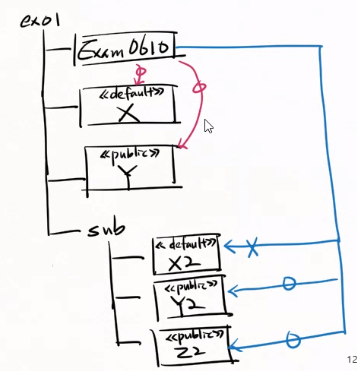 ex01
Exam0610
<<default>>
X
<<public>>
Y
sub
<<default>>
X2
<<public>>
Y2
<<public>>
Z2
12